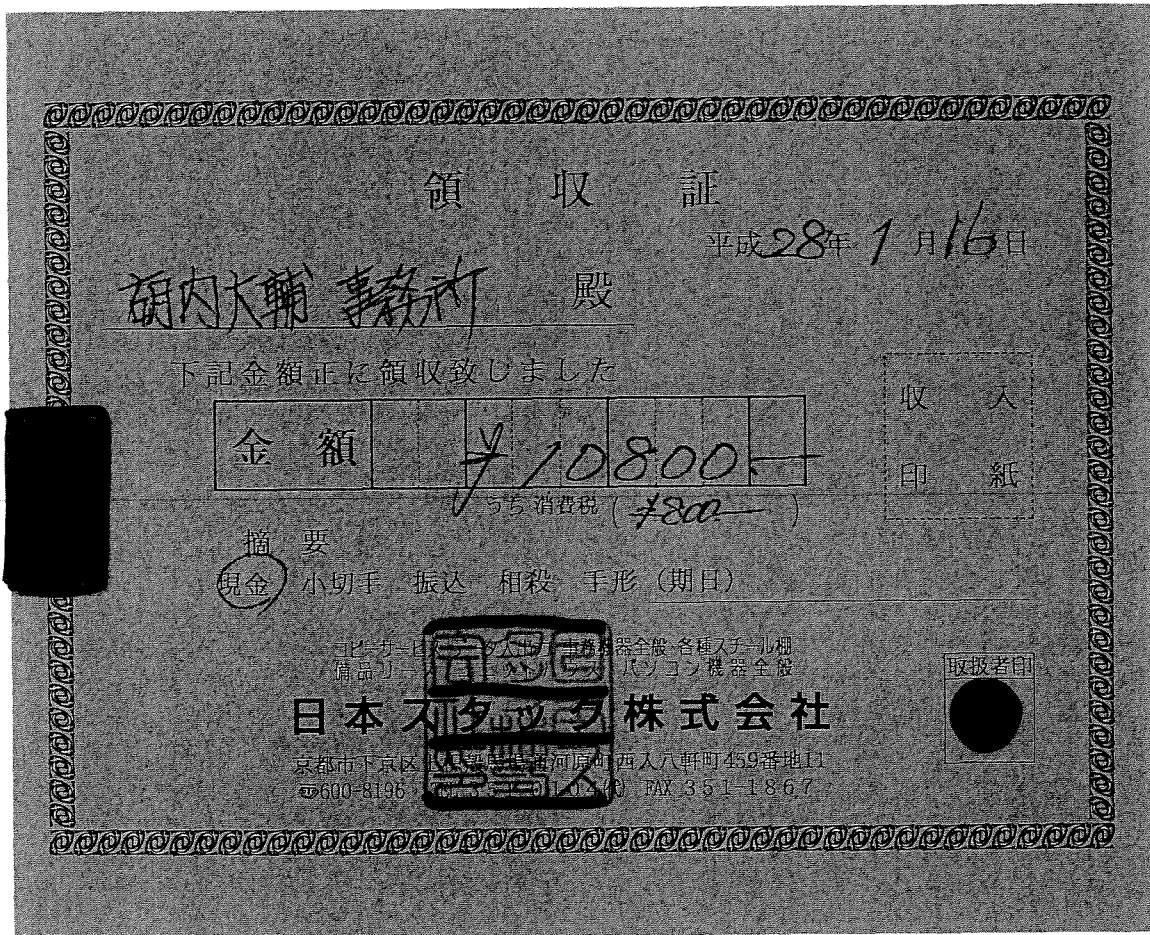 領収証
平成28年1月16日
胡内大輔 事務所 殿
下記金額正に領収致しました
金額 ¥10800.―
うち消費税(¥800―)
収入
印紙
摘要
現金 小切手 振込 相殺 手形(期日)
器全般 各種スチール棚
備品リ パソコン機器全般
日本スタック株式会社
取扱者印
京都市下京区 河原町西入八軒町459番地11
〒600-8196 FAX 351-1867